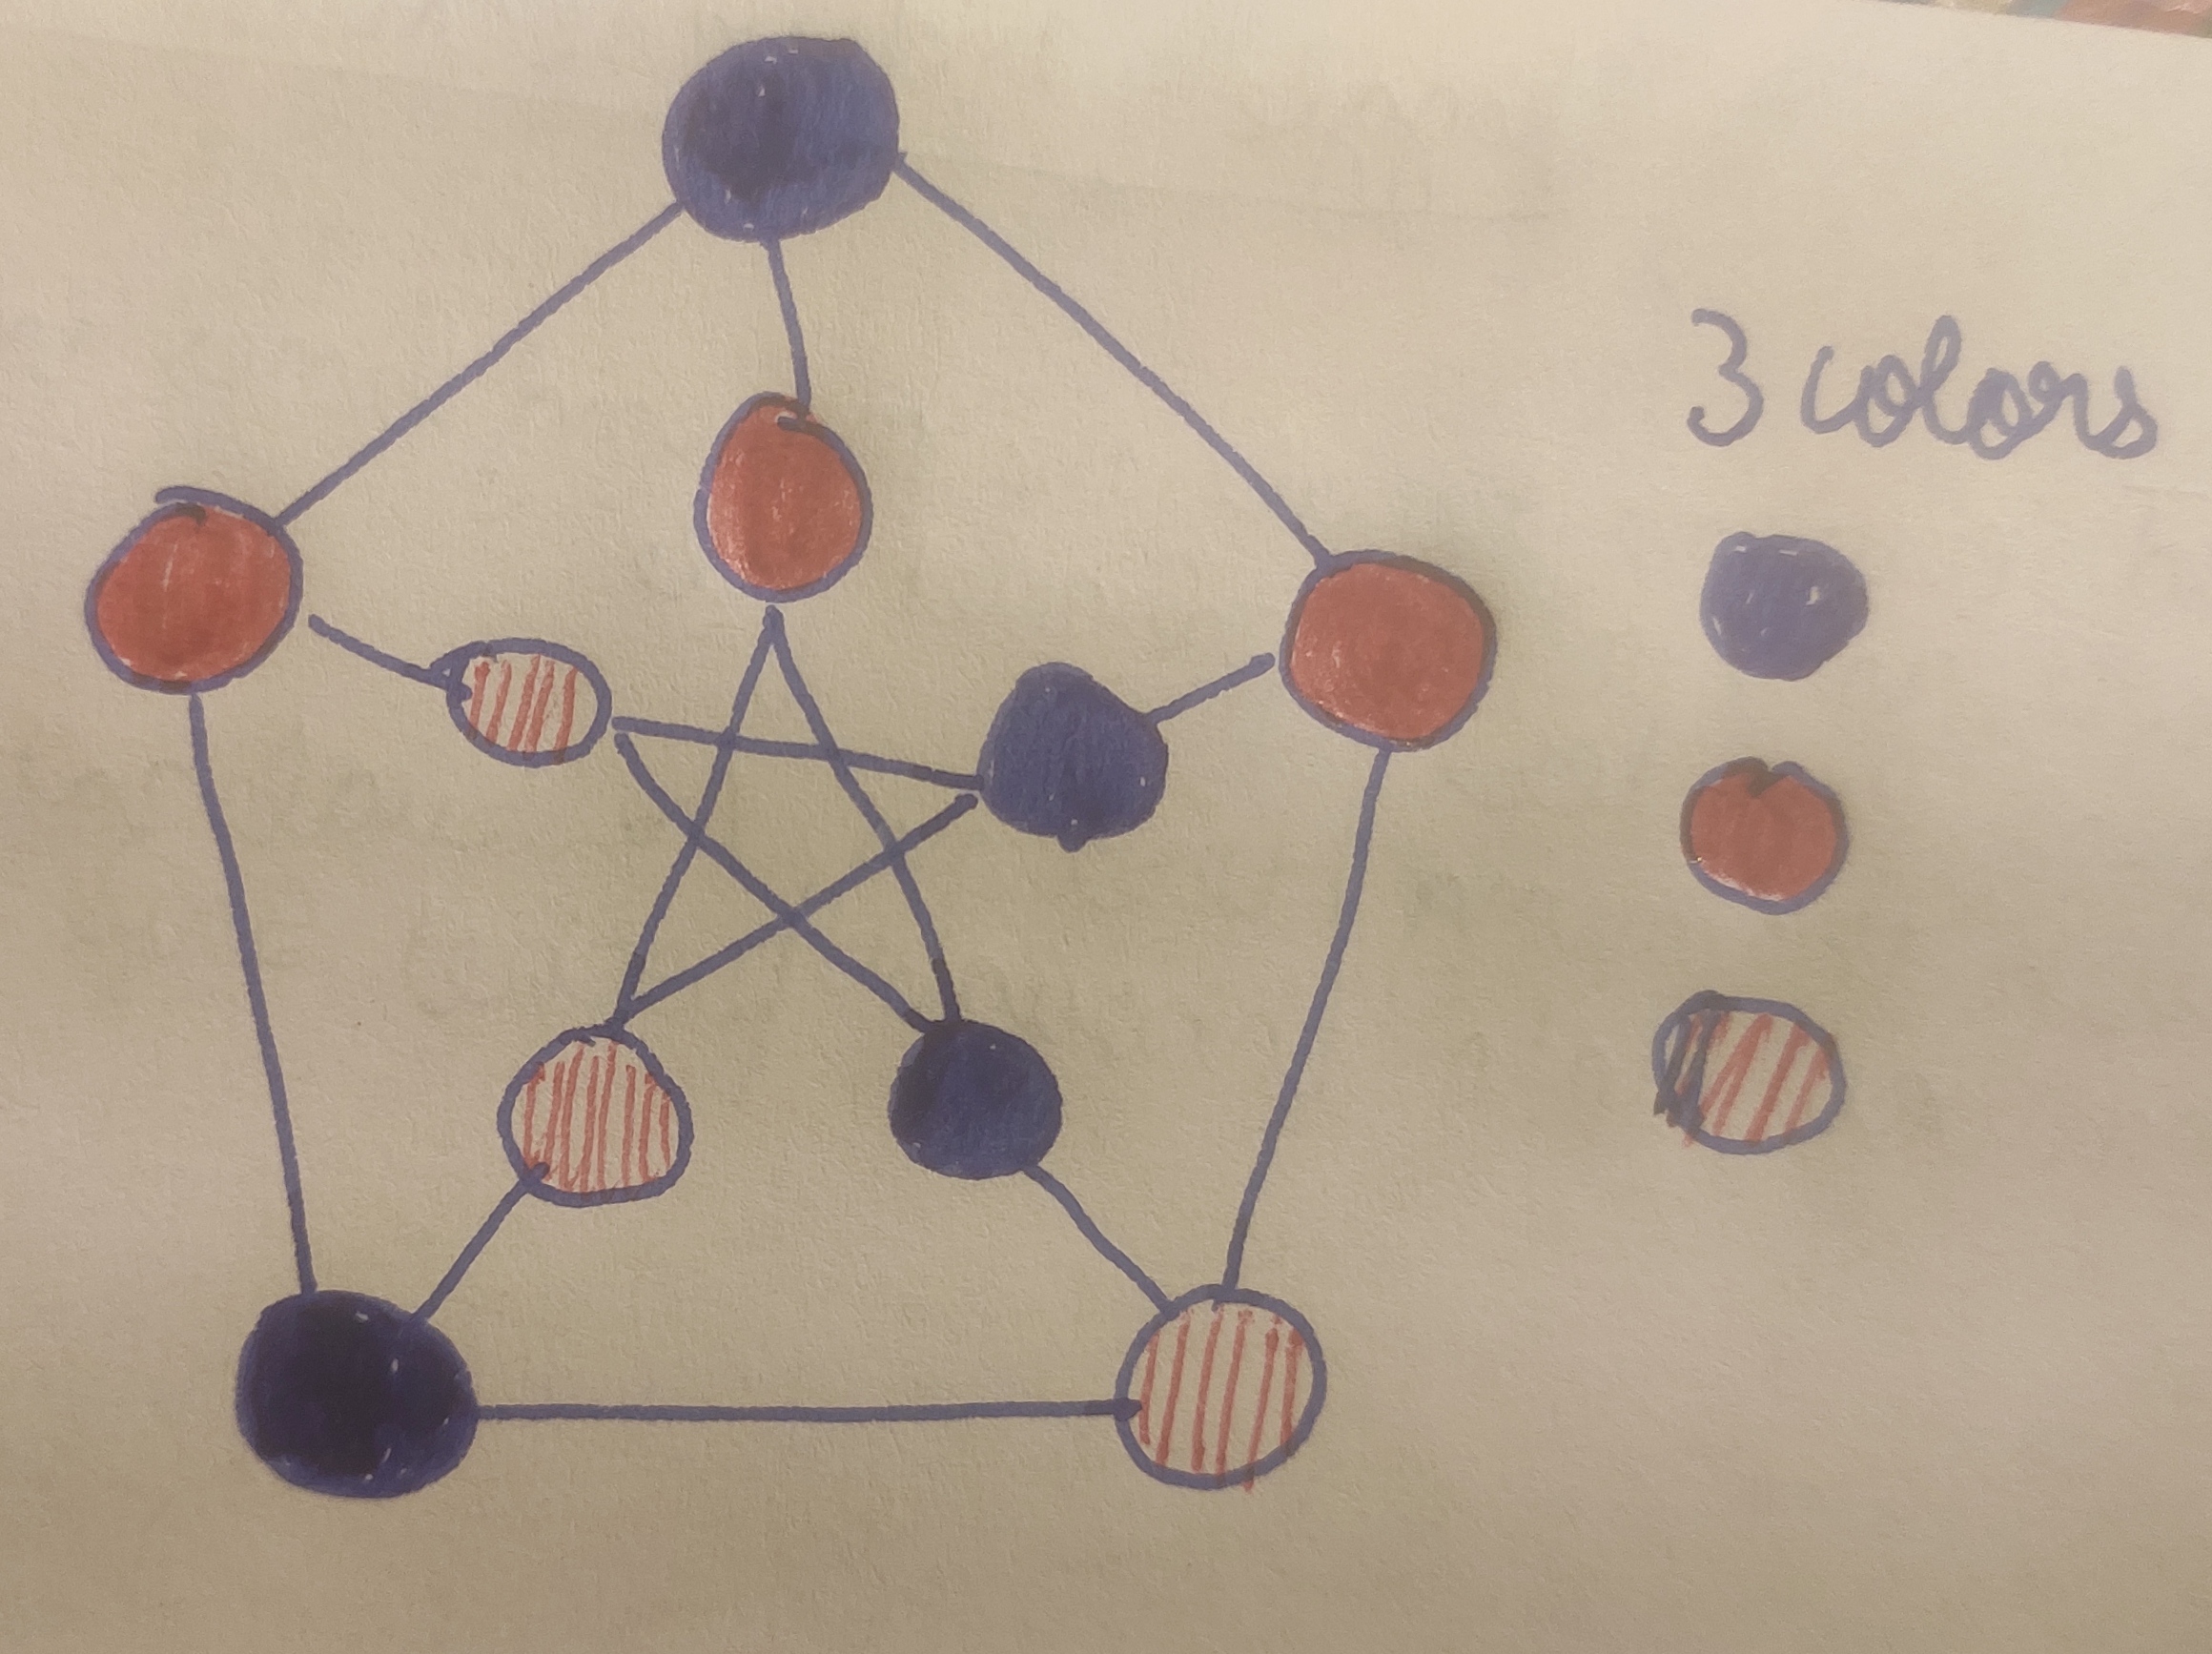 3 colors